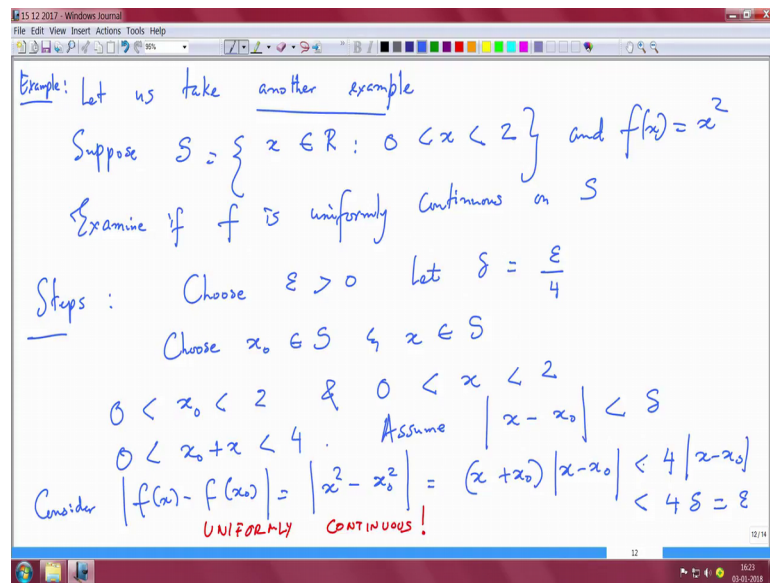 15 12 2017 - Windows Journal
File Edit View Insert Actions Tools Help
95%
Example: Let us take another example
Suppose S = { x ∈ R : 0 < x < 2 } and f(x) = x²
Examine if f is uniformly continuous on S
Steps : Choose ε > 0 Let δ = ε/4
Choose x₀ ∈ S & x ∈ S
0 < x₀ < 2 & 0 < x < 2
0 < x₀ + x < 4 . Assume |x - x₀| < δ
Consider |f(x) - f(x₀)| = |x² - x₀²| = (x + x₀) |x - x₀| < 4 |x - x₀|
< 4 δ = ε
UNIFORMLY CONTINUOUS !
12/14
12
16:23
03-01-2018